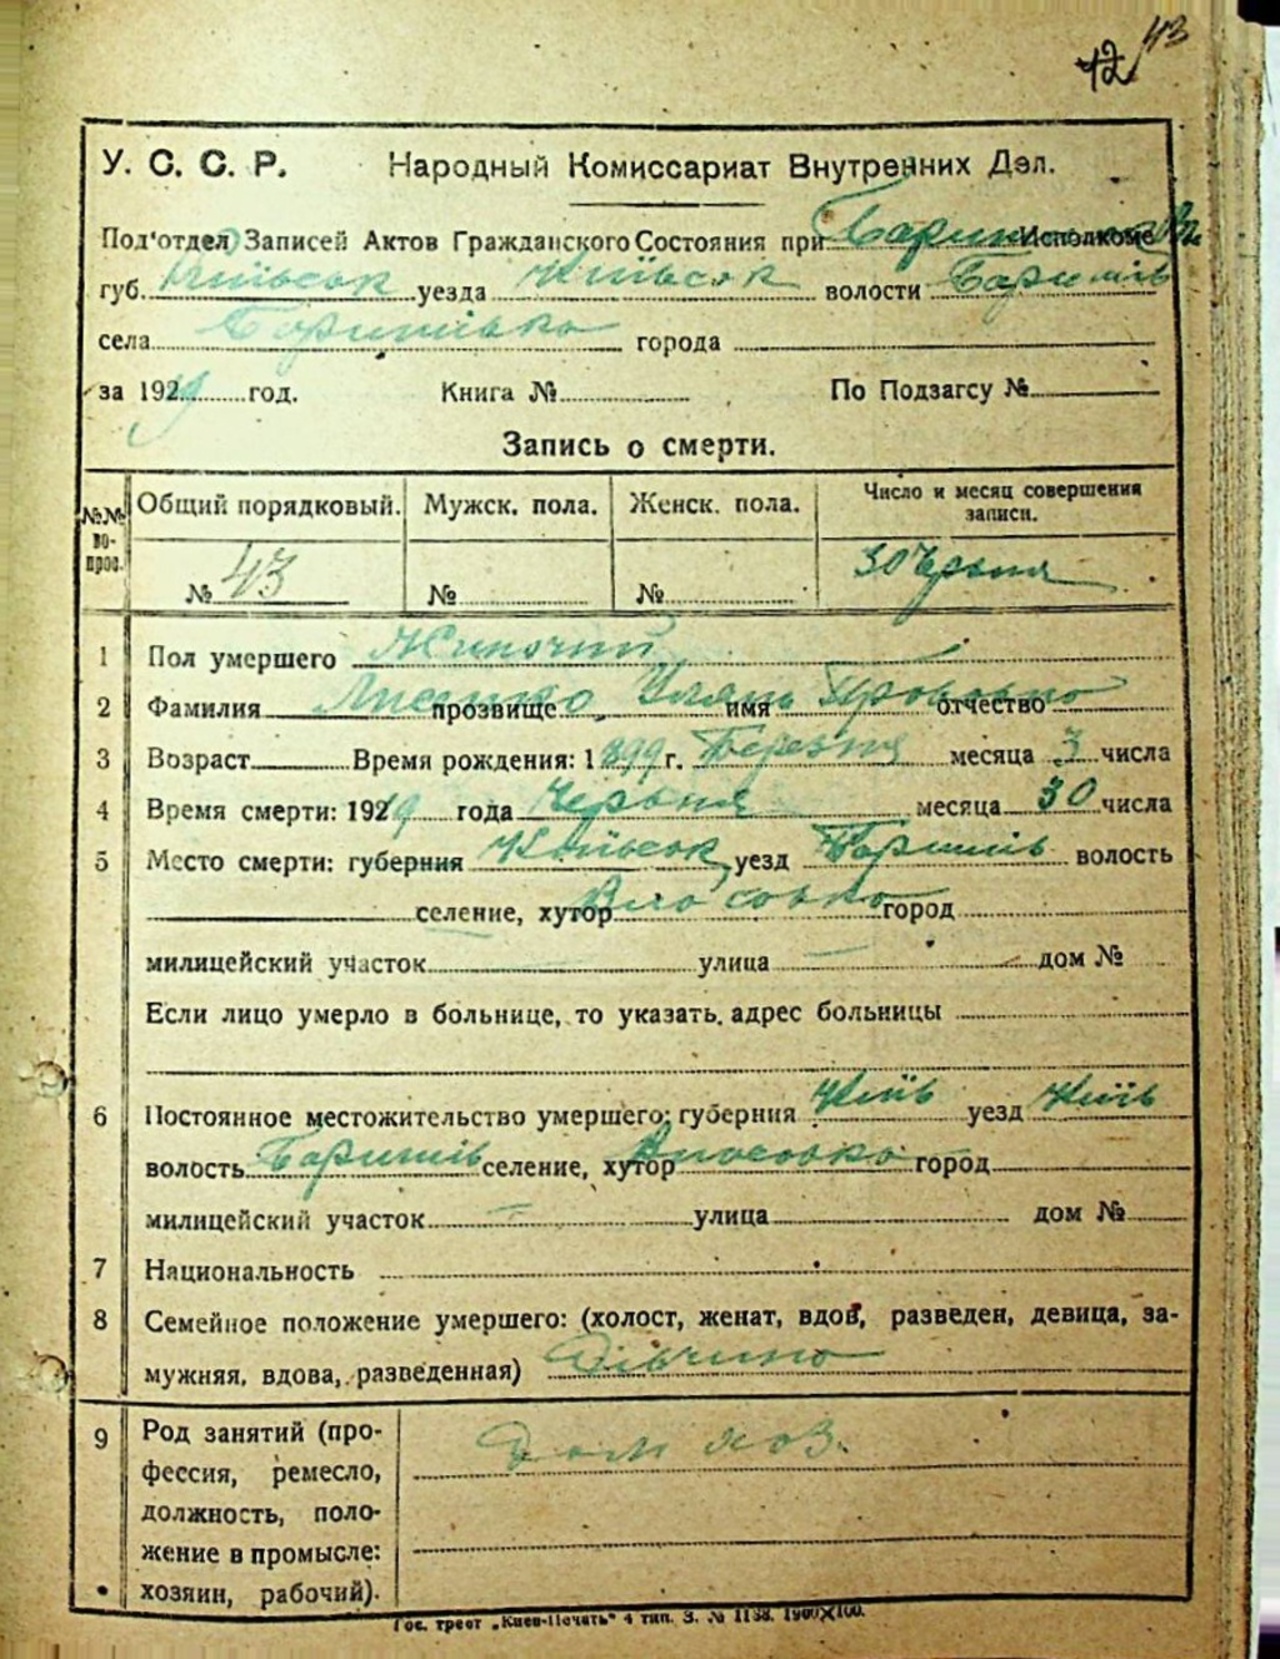 42 43
У. С. С. Р. Народный Комиссариат Внутренних Дэл.
Под'отдел Записей Актов Гражданского Состояния при Исполкоме
губ. Київськ уезда Київськ волости Баришів
села Баришівка города
за 192 год. Книга № По Подзагсу №
Запись о смерти.
№№ во-прос. Общий порядковый. Мужск. пола. Женск. пола. Число и месяц совершения записи.
№ 43 № № 30 Червня
1 Пол умершего Жиночий
2 Фамилия Лисенко прозвище имя Уляна отчество
3 Возраст Время рождения: 1899 г. Березня месяца 3 числа
4 Время смерти: 192 года Червня месяца 30 числа
5 Место смерти: губерния Київськ уезд Баришів волость
селение, хутор Власовка город
милицейский участок улица дом №
Если лицо умерло в больнице, то указать адрес больницы
6 Постоянное местожительство умершего: губерния Київ уезд Київ
волость Баришів селение, хутор Власовка город
милицейский участок улица дом №
7 Национальность
8 Семейное положение умершего: (холост, женат, вдов, разведен, девица, за-
мужняя, вдова, разведенная) Дівчина
9 Род занятий (про- Дом хоз.
фессия, ремесло,
должность, поло-
жение в промысле:
хозяин, рабочий).
Гос. трест „Киев-Печать" 4 тип. З. № 1138. 1900×100.